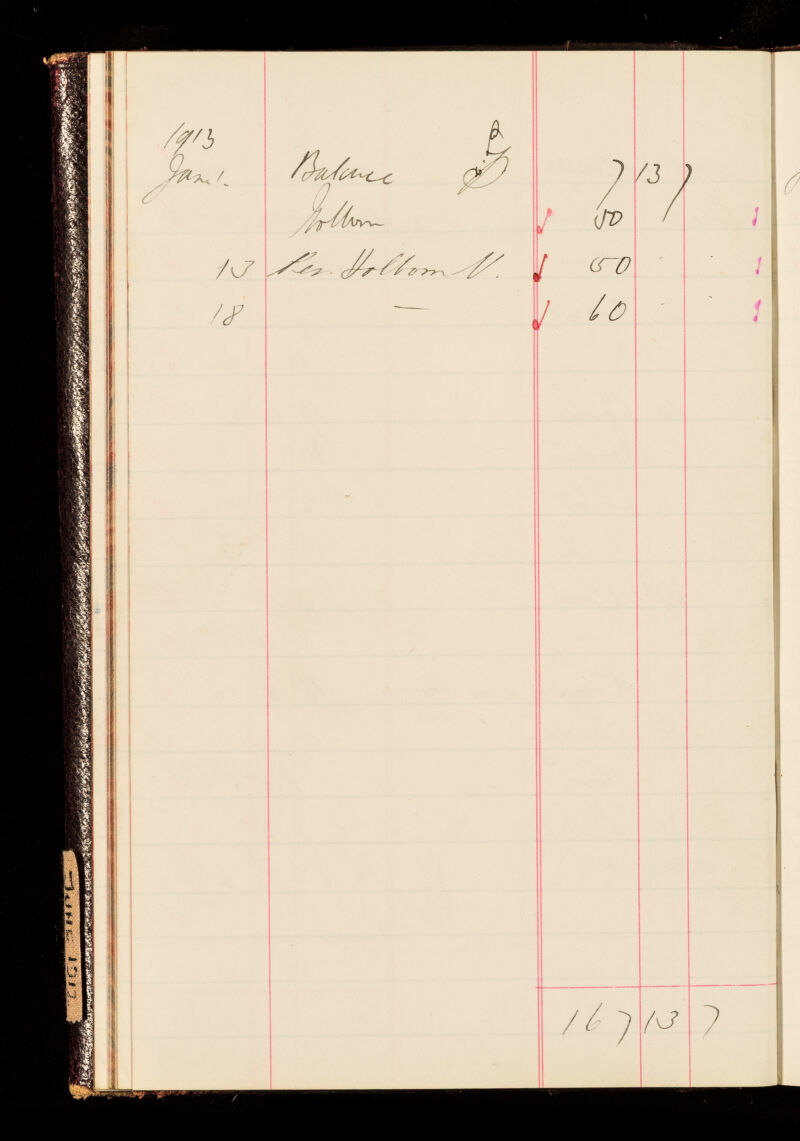 1913
Jan 1. Balance 7 13 7
Holborn 50
13 Per. Holborn V. 50 - -
18 — 60 - -
167 13 7
JUNE 1912